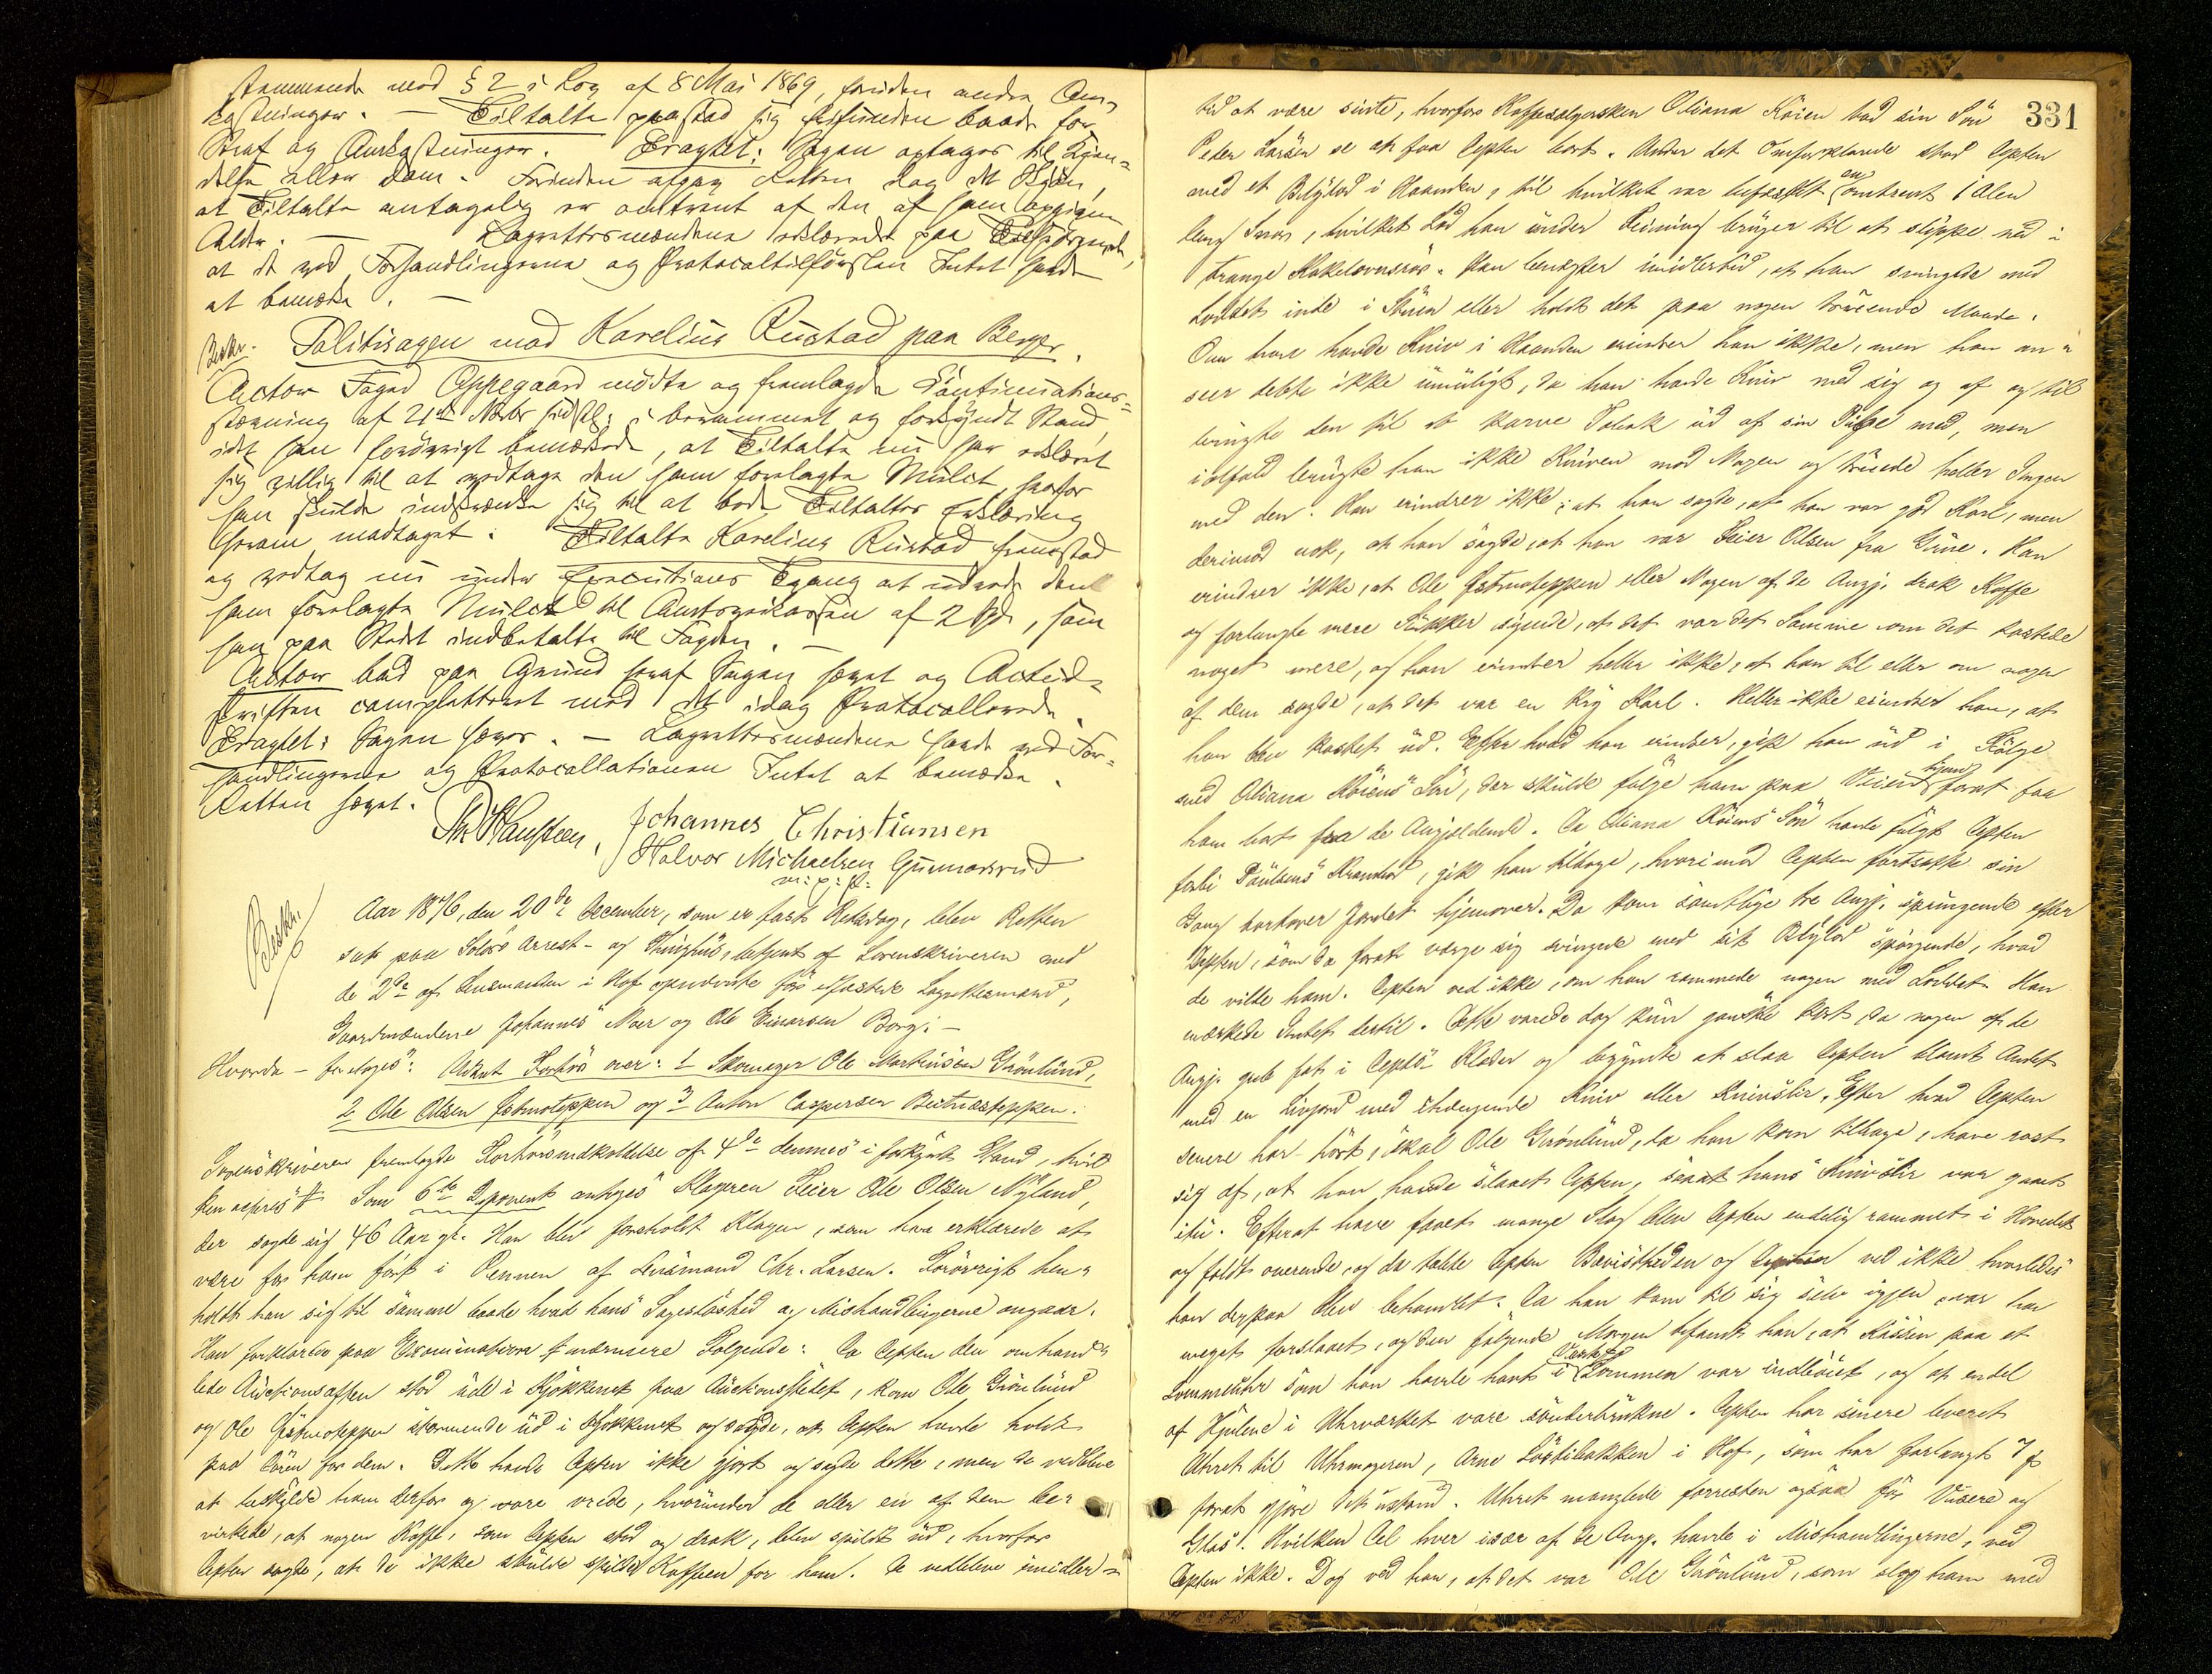 stemmende med § 2 i Lov af 8 Mai 1869, foruden andre Om-
kostninger. — Tiltalte paastod sig frifunden baade for
Straf og Omkostninger. Eragtet: Sagen optages til Kjen-
delse eller Dom. Forinden afgav Retten dog det Skjøn,
at Tiltalte antagelig er omtrent af den af ham opgivne
Alder. — Lagrettesmændene erklærede paa
at de ved Forhandlingerne og Protocoltilførslen Intet havde
at bemærke. —
Beskr. Politisagen mod Karelius Rustad paa Berger.
Actor Foged Oppegaard mødte og fremlagde Continuations-
stævning af 21de Novbr sidstl. i berammet og forkyndt Stand,
idet han forøvrigt bemærkede, at Tiltalte nu har erklæret
sig villig til at vedtage den ham forelagte Mulct, hvorfor
han skulde indskrænke sig til at bede Tiltaltes Erklæring
herom modtaget. Tiltalte Karelius Rustad fremstod
og vedtog nu under Executions Tvang at udrede den
ham forelagte Mulct til Amtsveikassen af 2 Spd, som
han paa Stedet indbetalte til Fogden. —
Actor bad paa Grund heraf Sagen hævet og Acteud-
skriften completteret med det idag Protocollerede.
Eragtet: Sagen hæves. — Lagrettesmændene havde ved For-
handlingerne og Protocollationen Intet at bemærke.
Retten hævet.
Johannes Christiansen
Halvor Michaelsen Gunnarsrud
m: p: P:
Beskr.
Aar 1876, den 20de December, som er fast Retsdag, blev Retten
sat paa Solørs Arrest- og Thinghus, betjent af Sorenskriveren med
de 2de af Lensmanden i Hof opnævnte før edfæstede Lagrettesmænd,
Gaardmændene Johannes Moer og Ole Einarsen Borg: —
Hvorda — foretoges: Advent Forhør over: 1 Skomager Ole Martinsen Grønlund,
2 Ole Olsen Østmoteppen og 3 Anton Caspersen
Sorenskriveren fremlagde Forhørsindkaldelse af 4de dennes i forkyndt Stand, hvil
ken acteres # Som 6te Deponent antoges Klageren Feier Ole Olsen Nyland,
der sagde sig 46 Aar gl. Han blev foreholdt Klagen, som han erklærede at
være for ham ført i Pennen af Lensmand Chr. Larsen. Forøvrigt hen-
holdt han sig til samme baade hvad hans Sagesløshed og Mishandlingerne angaar.
Han forklarede paa Examination nærmere Følgende: Da Cpten den omhand-
lede Auctionsaften stod ude i Kjøkkenet paa Auctionsstedet, kom Ole Grønlund
og Ole Østmoteppen stormende ud i Kjøkkenet og sagde, at Cpten havde holdt
paa Døren for dem. Dette havde Cpten ikke gjort og sagde dette, men de vedbleve
at beskylde ham derfor og vare vrede, hvorunder de eller en af dem be
virkede, at nogen Kaffe, som Cpten stod og drak, blev spildt ud, hvorfor
Cpten sagde, at de ikke skulde spilde Kaffeen for ham. De vedbleve imidler-
331
tid at være sinte, hvorfor Kaffesælgersken Oliana Køien bad sin Søn
Peder Larsen se at faa Cpten bort. Under det Omforklarede stod Cpten
med et Blylod i Haanden, til hvilket var befæstet en omtrent 1 Alen
lang Snor, hvilket Lod han under Feining bruger til at slippe ned i
trange Kakkelovnsrør. Han benægter imidlertid, at han svingede med
Loddet inde i Stuen eller holdt det paa nogen truende Maade.
Om han havde Kniv i Haanden erindrer han ikke, men han an-
seer dette ikke umuligt, da han havde Kniv med sig og af og til
brugte den til at karve Tobak ud af sin Pibe med, men
ialfald brugte han ikke Kniven mod Nogen og truede heller Ingen
med den. Han erindrer ikke, at han sagde, at han var god Karl, men
derimod nok, at han sagde, at han var Feier Olsen fra Grue. Han
erindrer ikke, at Ole Østmoteppen eller Nogen af de Angj. drak Kaffe
og forlangte mere Sukker sigende, at det var det Samme om det kostede
noget mere, og han erindrer heller ikke, at han til eller om nogen
af dem sagde, at det var en Kry Karl. Heller ikke erindrer han, at
han blev kastet ud. Efter hvad han erindrer, gik han ud i Følge
med Oliana Køiens Søn, der skulde følge ham paa Veien hjem forat faa
ham bort fra de Angjældende. Da Oliana Køiens Søn havde fulgt Cpten
forbi Paulsens Krambod, gik han tilbage, hvorimod Cpten fortsatte sin
Gang bortover Jordet hjemover. Da kom samtlige tre Angj. springende efter
Cpten, som da forat værge sig svingede med sit Blylod spørgende, hvad
de vilde ham. Cpten ved ikke, om han rammede nogen med Loddet. Han
mærkede Intet dertil. Dette varede dog kun ganske kort, da nogen af de
Angj. greb fat i Cptens Klæder og begyndte at slaa Cpten blandt Andet
med en Livjord med thængende Kniv eller Knivslir. Efter hvad Cpten
senere har hørt, skal Ole Grønlund, da han kom tilbage, have rost
sig af, at han havde slaaet Cpten, saaat hans Knivslir var gaaet
itu. Efterat have faaet mange Slag blev Cpten endelig rammet i Hovedet
og faldt overende, og da tabte Cpten Bevistheden og ved ikke hvorledes
han derpaa blev behandlet. Da han kom til sig selv igjen, var han
meget forslaaet, og den følgende Morgen befandt han, at Kassen paa et
Lommeuhr som han havde havt i Vestelommen var indbøiet, og at endel
af Hjulene i Uhrværket vare sønderbrukne. Cpten har senere leveret
Uhret til Uhrmageren, Arne i Hof, som har forlangt 7
forat gjøre det istand. Uhret manglede forresten ogsaa før Visere og
Glas. Hvilken Del hver især af de Angj. havde i Mishandlingerne, ved
Cpten ikke. Dog ved han, at det var Ole Grønlund, som slog ham med